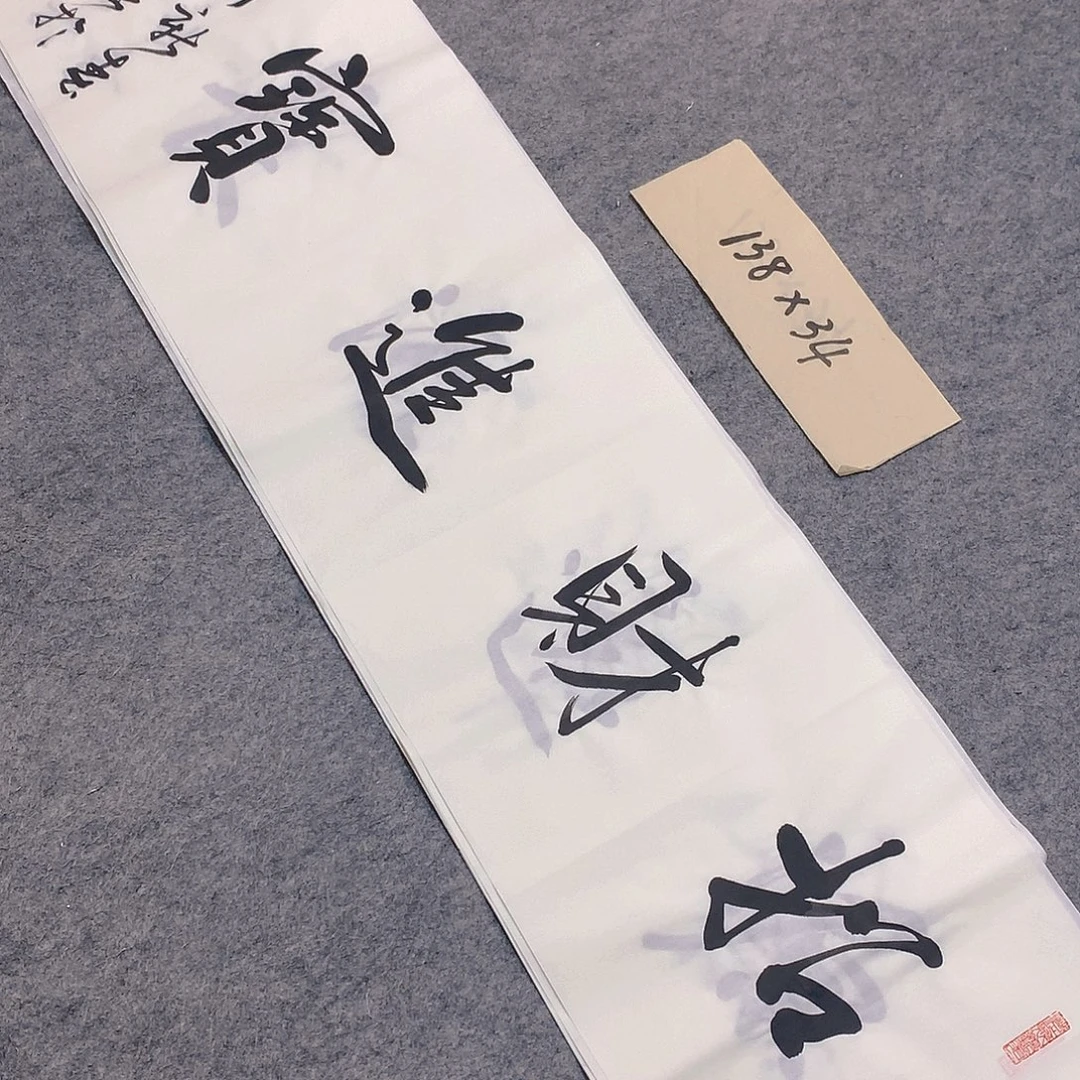 招財進寶
138 x 34